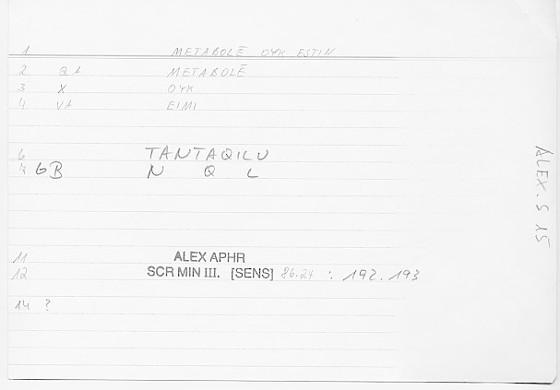 1 METABOLĒ OYK ESTIN
2 QA METABOLĒ
3 X OYK
4 VA EIMI
6 TANTAQILU
7 6B N Q L
11 ALEX APHR
12 SCR MIN III. [SENS] 86.24 : 192.193
14 ?
ALEX. S 15